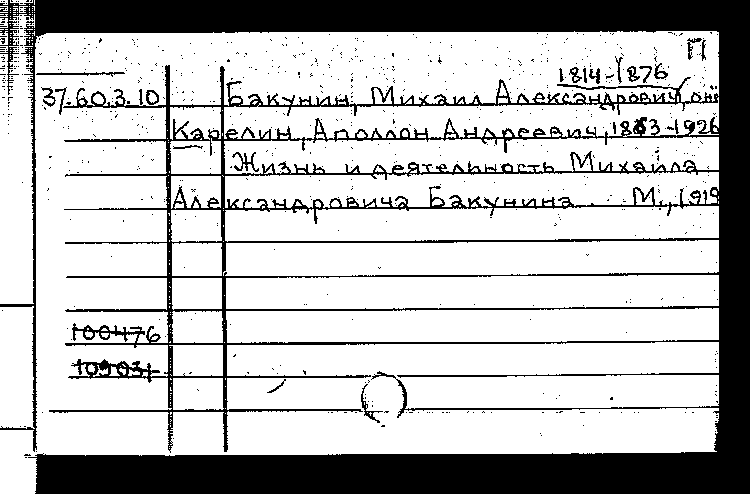 П
1814-1876
37.60.3.10 Бакунин, Михаил Александрович, о нём
Карелин, Аполлон Андреевич, 1863-1926
Жизнь и деятельность Михаила
Александровича Бакунина. М., 1919
100476
109031